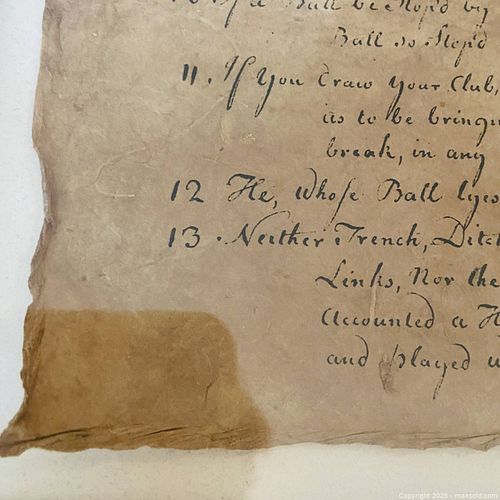 a Ball be Stop'd by
Ball so Stop'd
11. If You draw Your Club,
as to be bringi
break, in any
12 He, Whose Ball lyes
13. Neither Trench, Ditc
Links, Nor the
Accounted a H
and played
Copyright 2025 - maxsold.com